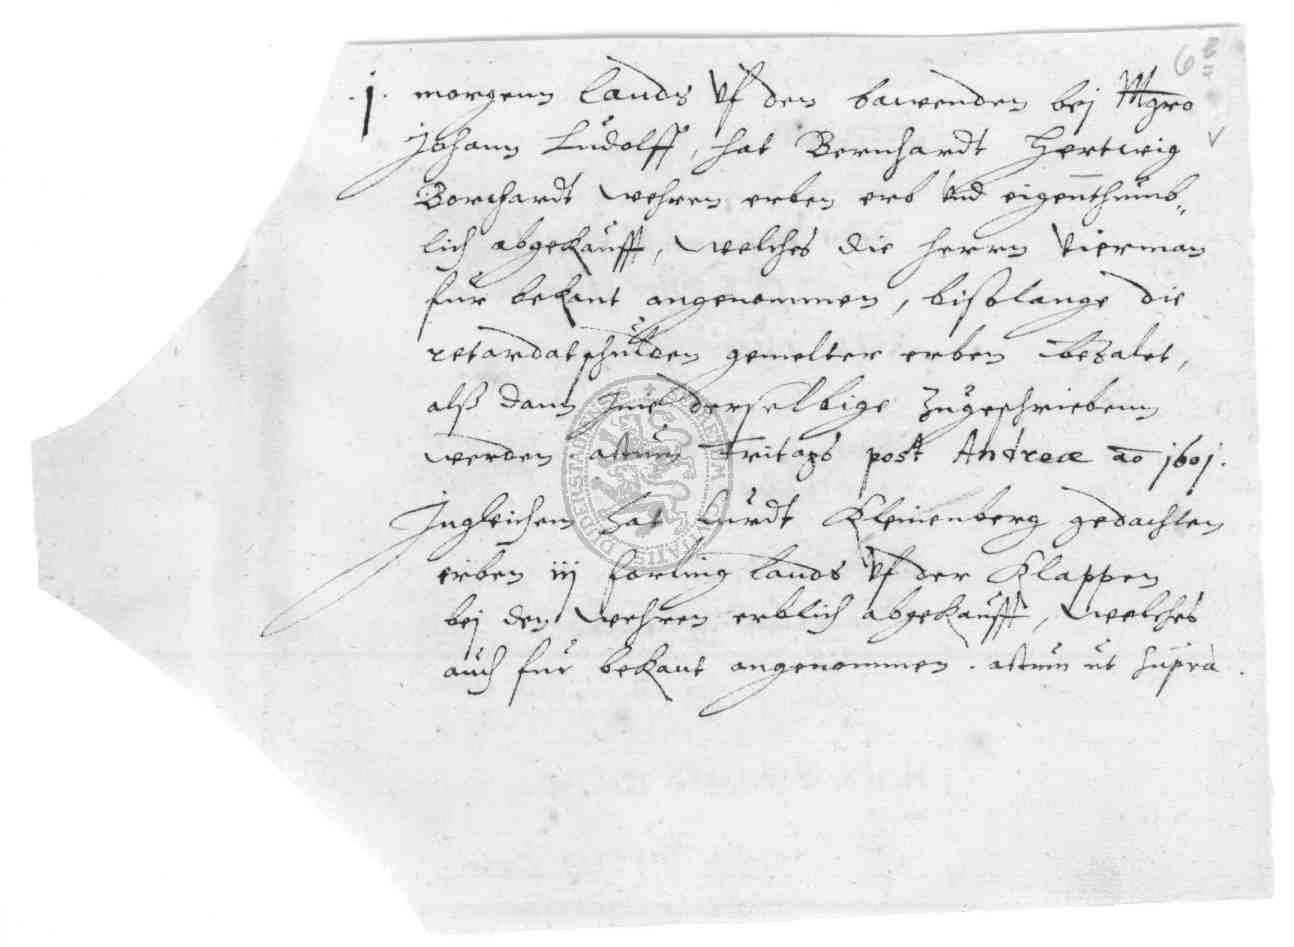 6
.j. morgenn lands vf den bawenden bej Mgro
Johann Ludolff, hat Bernhardt Hertwig
Borchardt wehren erben erb vnd eigenthumb-
lich abgekaufft, welches die herrn vierman
fur bekant angenommen, bißlange die
retardat schulden gemelter erben bezalet,
alß dann jme derselbige zugeschriebenn
werden. actum Fritags post Andreæ ao 1601.
Jngleichem hat Curdt Kleinenberg gedachten
erben iij forling lands vf der Klappen
bej den wehren erblich abgekaufft, welches
auch fur bekant angenommen. actum ut supra.